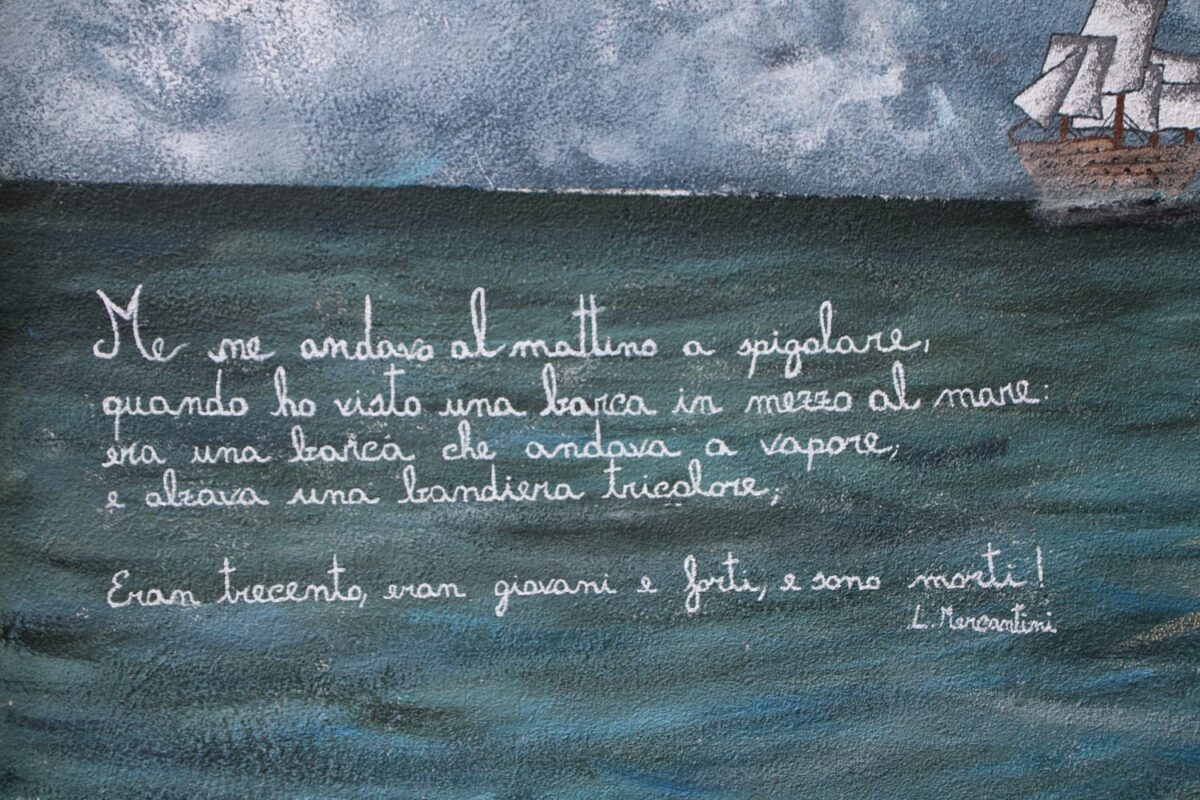 Me ne andavo al mattino a spigolare,
quando ho visto una barca in mezzo al mare:
era una barca che andava a vapore,
e alzava una bandiera tricolore;
Eran trecento, eran giovani e forti, e sono morti!
L. Mercantini